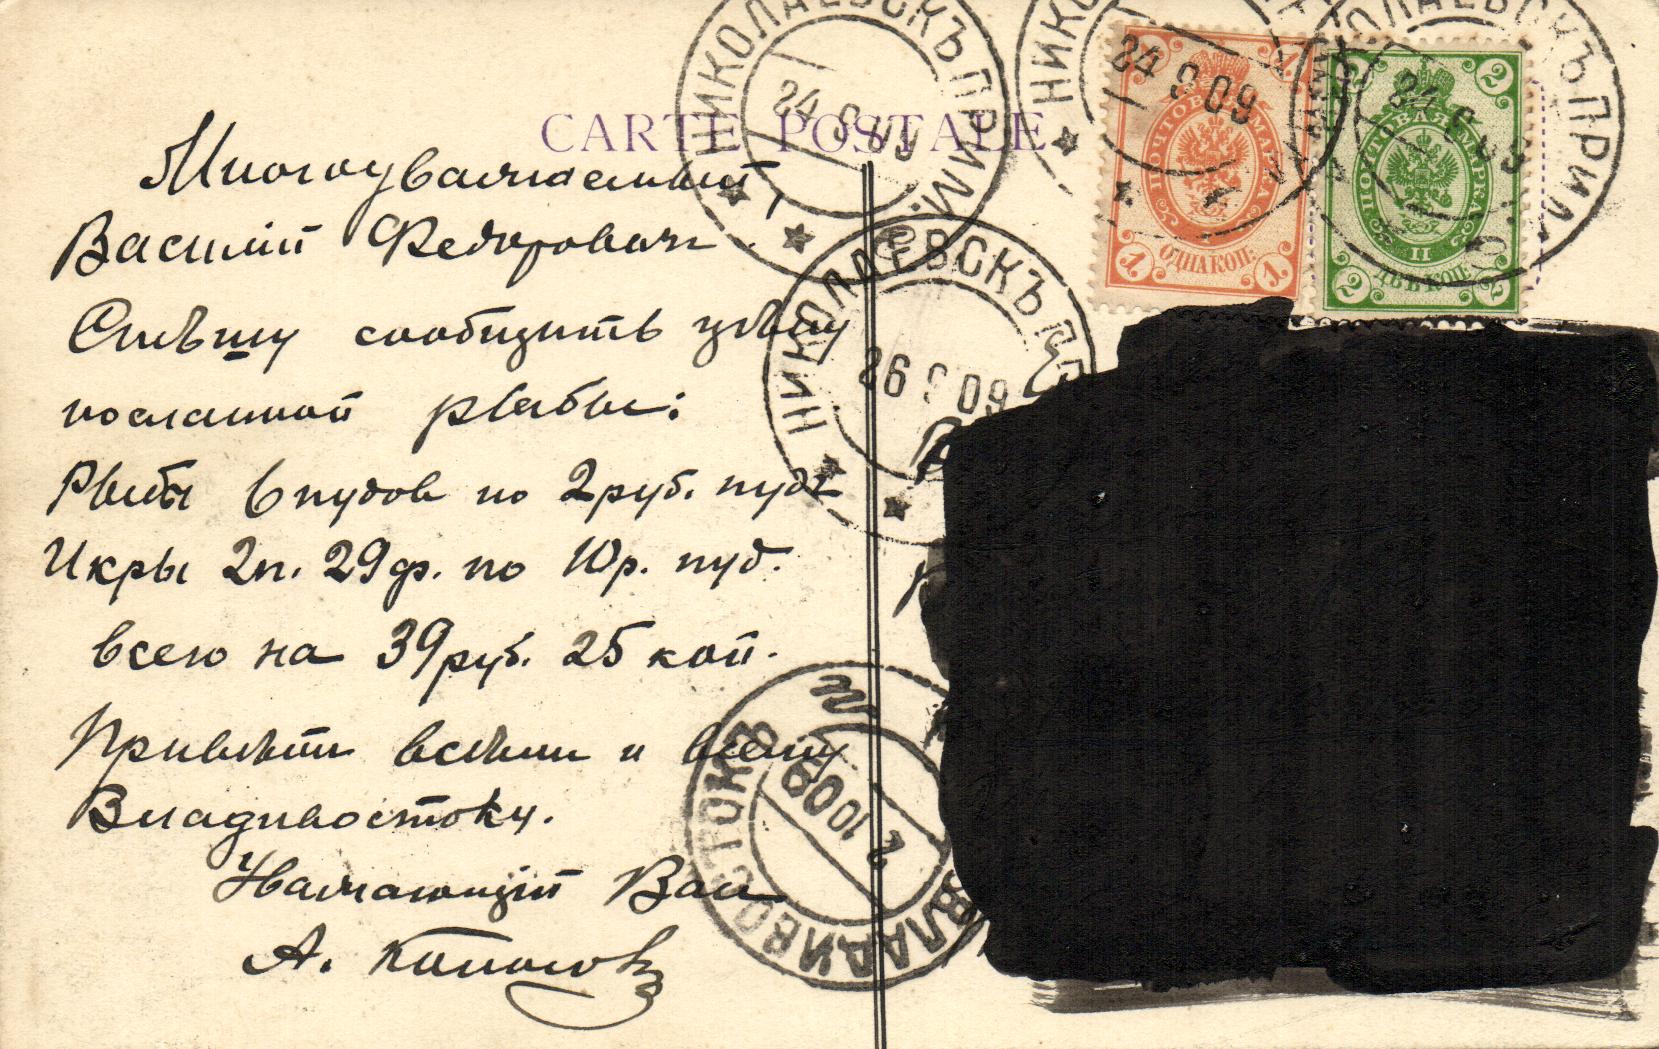 CARTE POSTALE
Многоуважаемый
Василій Федоровичъ.
Спѣшу сообщить цѣну
посланной рыбы:
Рыбы 6 пудов по 2 руб. пудъ
Икры 2 п. 29 ф. по 10 р. пуд.
всего на 39 руб. 25 коп.
Привѣтъ всѣмъ и всему
Владивостоку.
Уважающій Вас
А.
НИКОЛАЕВСКЪ ПРИМ.
24 9 09
НИКО
24 9 09
НИКОЛАЕВСКЪ ПРИМ
24 9 09
НИКОЛАЕВСКЪ ПР
26 9 09
ВЛАДИВОСТОКЪ
2 10 09
ПОЧТОВАЯ МАРКА
1 1 1 1
ОДНА КОП.
ПОЧТОВАЯ МАРКА
2 2 2 2
II
ДВѢ КОП.